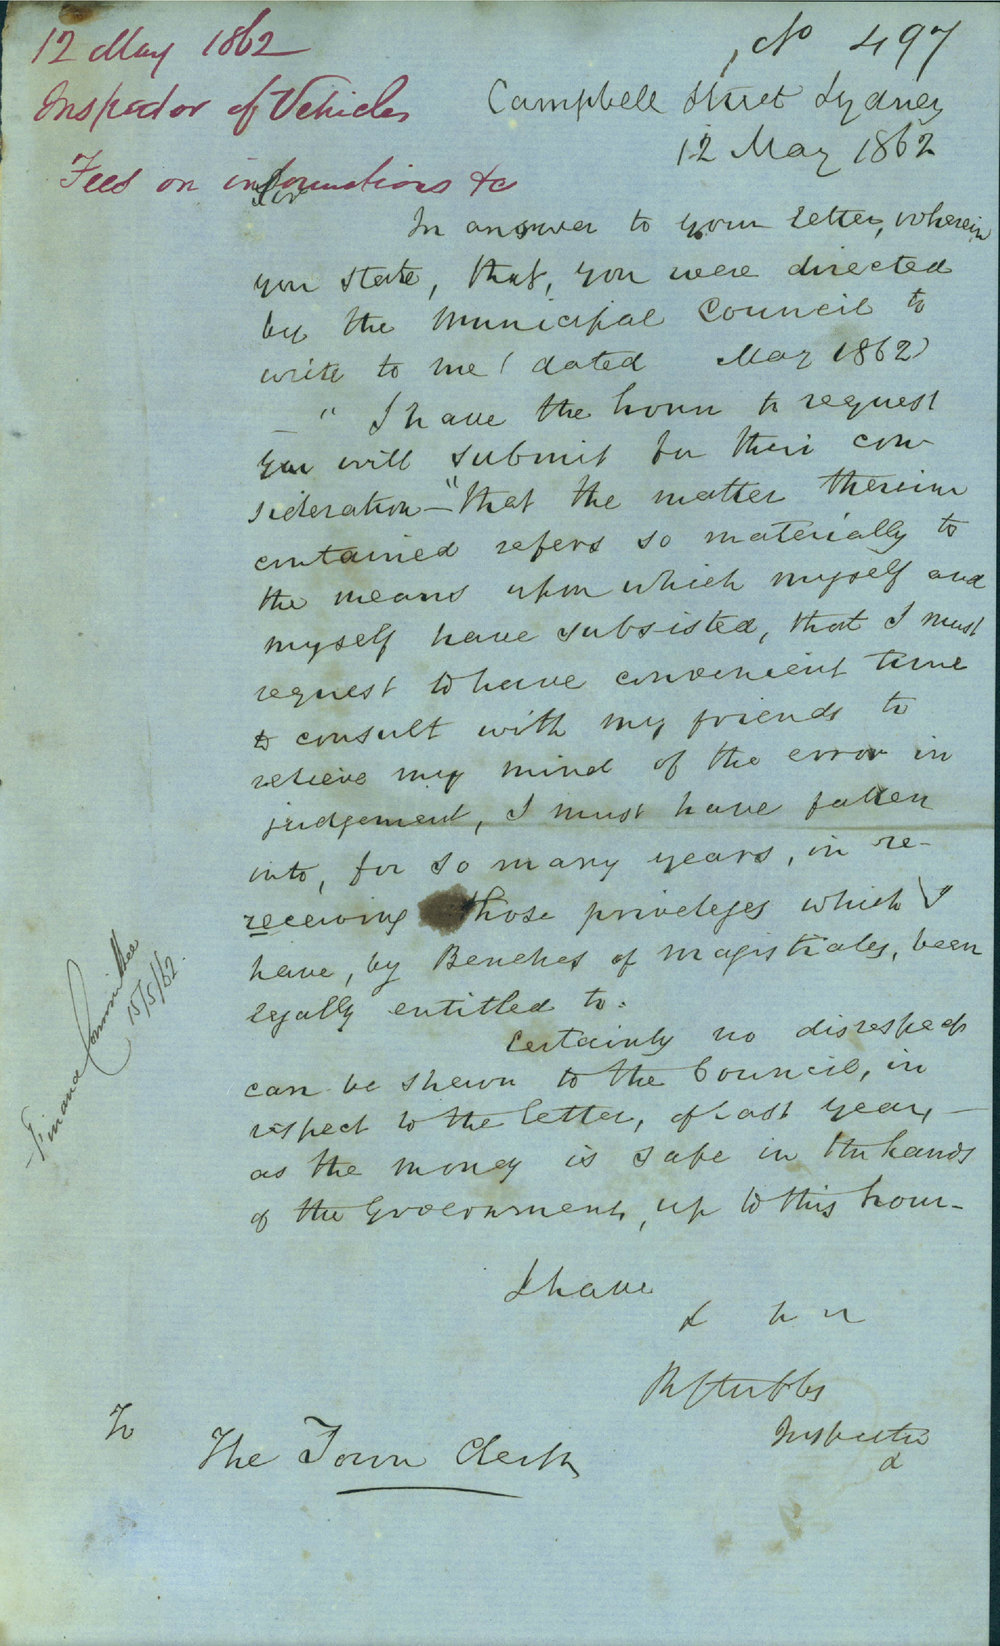 12 May 1862
Inspector of Vehicles
Fees on informations &c
No 497
Campbell Street Sydney
12 May 1862
Sir
In answer to your letter, wherein
you state, that, you were directed
by the Municipal Council to
write to me (dated May 1862)
— " I have the honor to request
you will submit for their con-
sideration —" that the matter therein
contained refers so materially to
the means upon which myself and
myself have subsisted, that I must
request to have convenient time
to consult with my friends to
relieve my mind of the error in
judgement, I must have fallen
into, for so many years, in re-
receiving those priveleges which I
have, by Benches of Magistrates, been
legally entitled to.
Certainly no disrespect
can be shewn to the Council, in
respect to the letter, of last year, —
as the money is safe in the hands
of the Government, up to this hour —
I have
& h
R Stubbs
Inspector
&
To
The Town Clerk
Finance Committee
15/5/62.